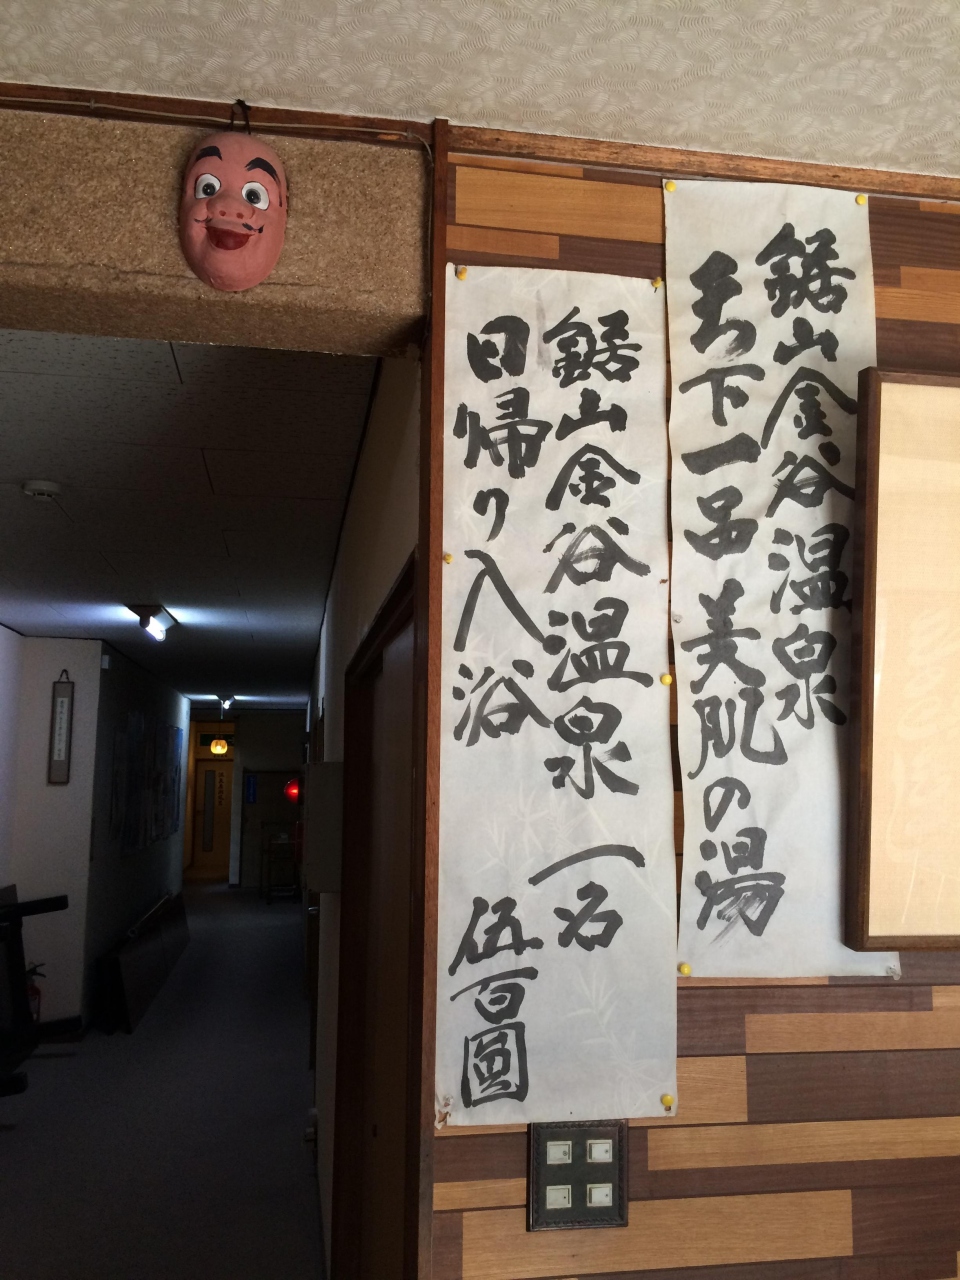 鋸山金谷温泉
下一品 美肌の湯
鋸山金谷温泉 一名
日帰り入浴 伍百圓